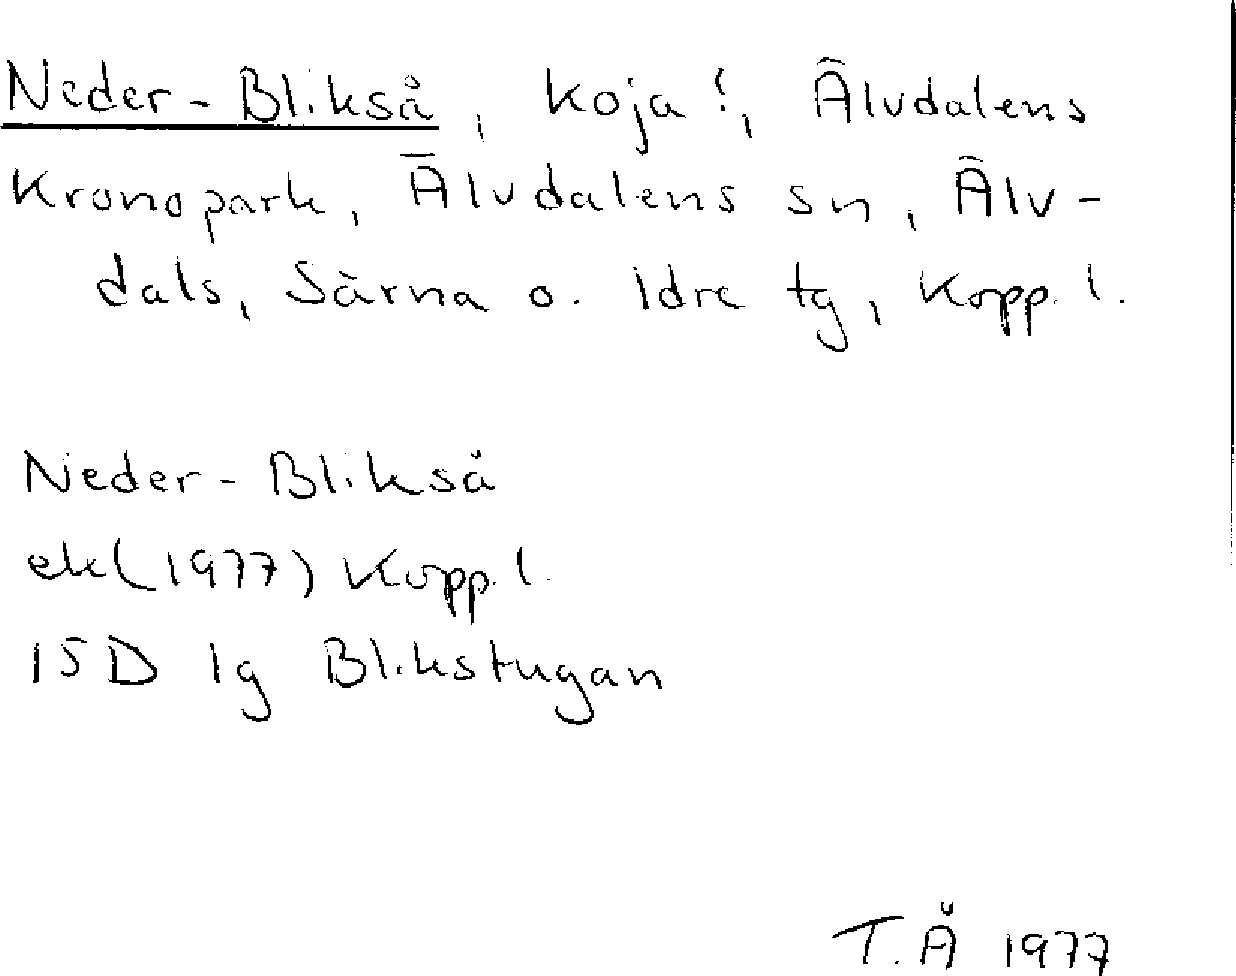 Neder-Blikså, koja!, Älvdalens
Kronopark, Älvdalens sn, Älv-
dals, Särna o. Idre tg, Kopp. l.
Neder-Blikså
ek(1977) Kopp. l.
15D 1g Blikstugan
T.Å 1977